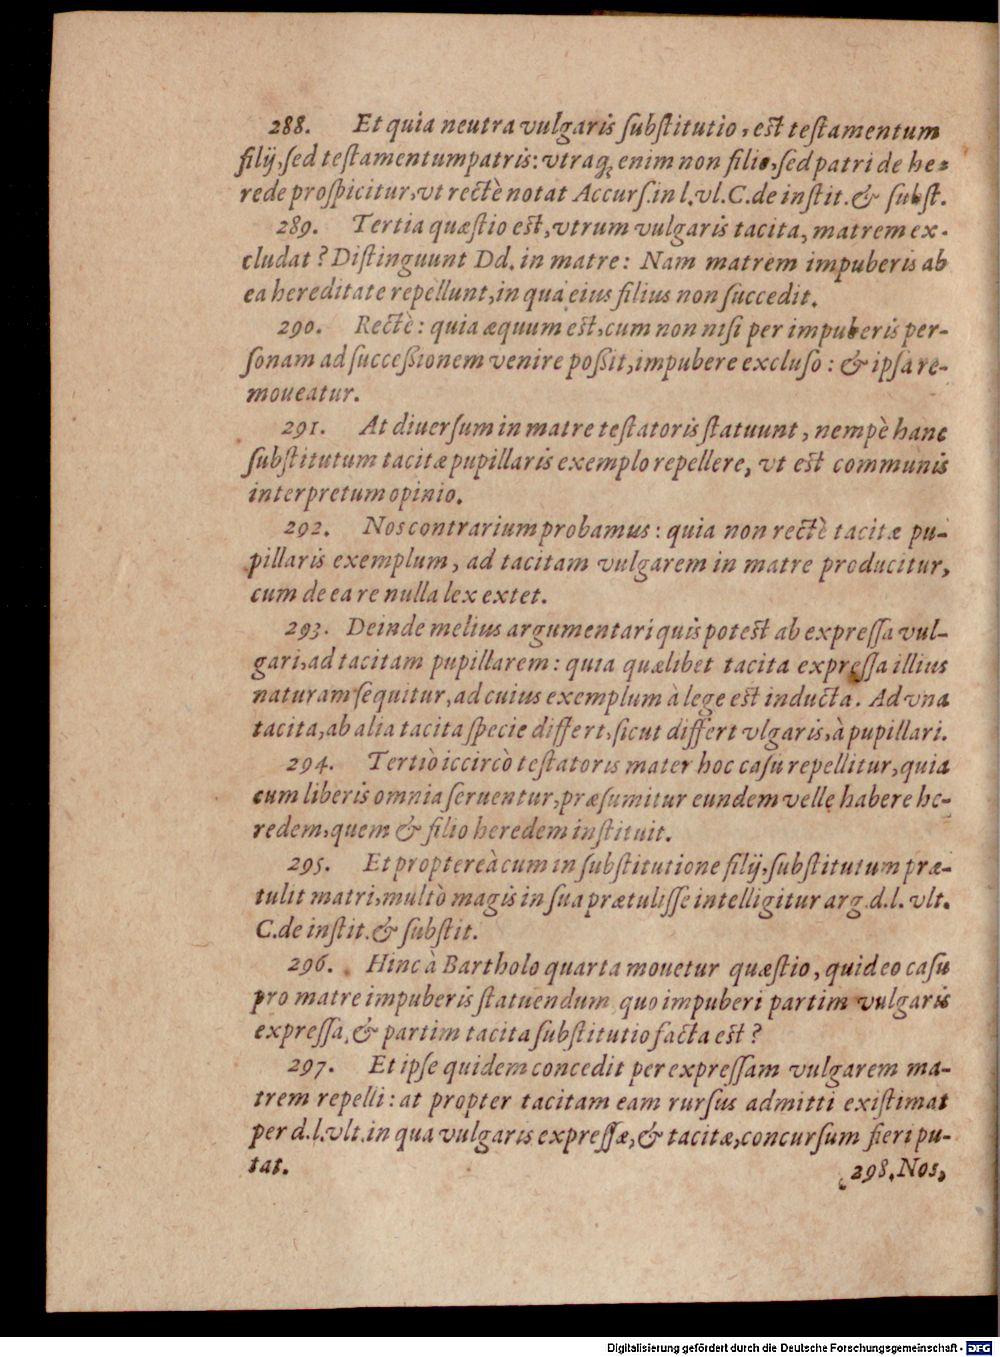 288. Et quia neutra vulgaris ſubſtitutio, eſt teſtamentum
filij, ſed teſtamentum patris: vtraq; enim non filio, ſed patri de he=
rede proſpicitur, vt rectè notat Accurſ. in l. vl. C. de inſtit. & ſubſt.
289. Tertia quæſtio eſt, vtrum vulgaris tacita, matrem ex-
cludat? Diſtinguunt Dd. in matre: Nam matrem impuberis ab
ea hereditate repellunt, in qua eius filius non ſuccedit.
290. Rectè: quia æquum eſt, cum non niſi per impuberis per-
ſonam ad ſucceßionem venire poßit, impubere excluſo: & ipſa re-
moueatur.
291. At diuerſum in matre teſtatoris ſtatuunt, nempè hanc
ſubſtitutum tacitæ pupillaris exemplo repellere, vt eſt communis
interpretum opinio.
292. Nos contrarium probamus: quia non rectè tacitæ pu-
pillaris exemplum, ad tacitam vulgarem in matre producitur,
cum de ea re nulla lex extet.
293. Deinde melius argumentari quis poteſt ab expreſſa vul-
gari, ad tacitam pupillarem: quia quælibet tacita expreſſa illius
naturam ſequitur, ad cuius exemplum à lege eſt inducta. Ad vna
tacita, ab alia tacita ſpecie differt, ſicut differt vlgaris, à pupillari.
294. Tertiò iccircò teſtatoris mater hoc caſu repellitur, quia
cum liberis omnia ſeruentur, præſumitur eundem velle habere he-
redem, quem & filio heredem inſtituit.
295. Et proptereà cum in ſubſtitutione filij, ſubſtitutum præ-
tulit matri, multò magis in ſua prætuliſſe intelligitur arg. d. l. vlt.
C. de inſtit. & ſubſtit.
296. Hinc à Bartholo quarta mouetur quæſtio, quid eo caſu
pro matre impuberis ſtatuendum, quo impuberi partim vulgaris
expreſſa, & partim tacita ſubſtitutio facta eſt?
297. Et ipſe quidem concedit per expreſſam vulgarem ma-
trem repelli: at propter tacitam eam rurſus admitti exiſtimat
per d. l. vlt. in qua vulgaris expreſſæ, & tacitæ, concurſum fieri pu-
tat.
298. Nos,
Digitalisierung gefördert durch die Deutsche Forschungsgemeinschaft - DFG